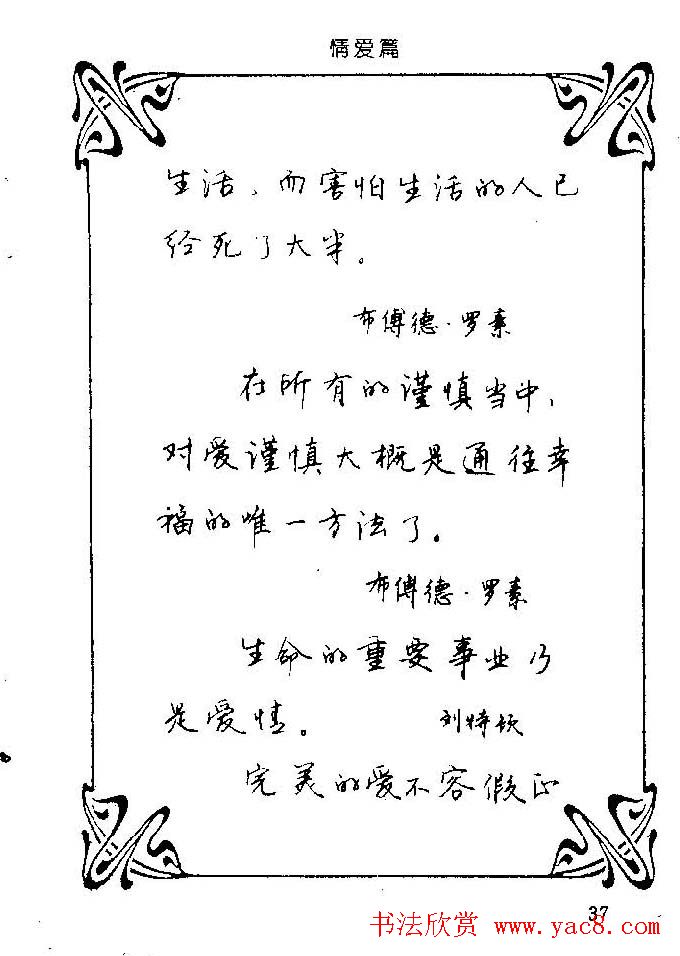 情爱篇
生活,而害怕生活的人已
给死了大半。
布傅德·罗素
在所有的谨慎当中,
对爱谨慎大概是通往幸
福的唯一方法了。
布傅德·罗素
生命的重要事业乃
是爱情。 刘特钦
完美的爱不容假正
37
书法欣赏 www.yac8.com